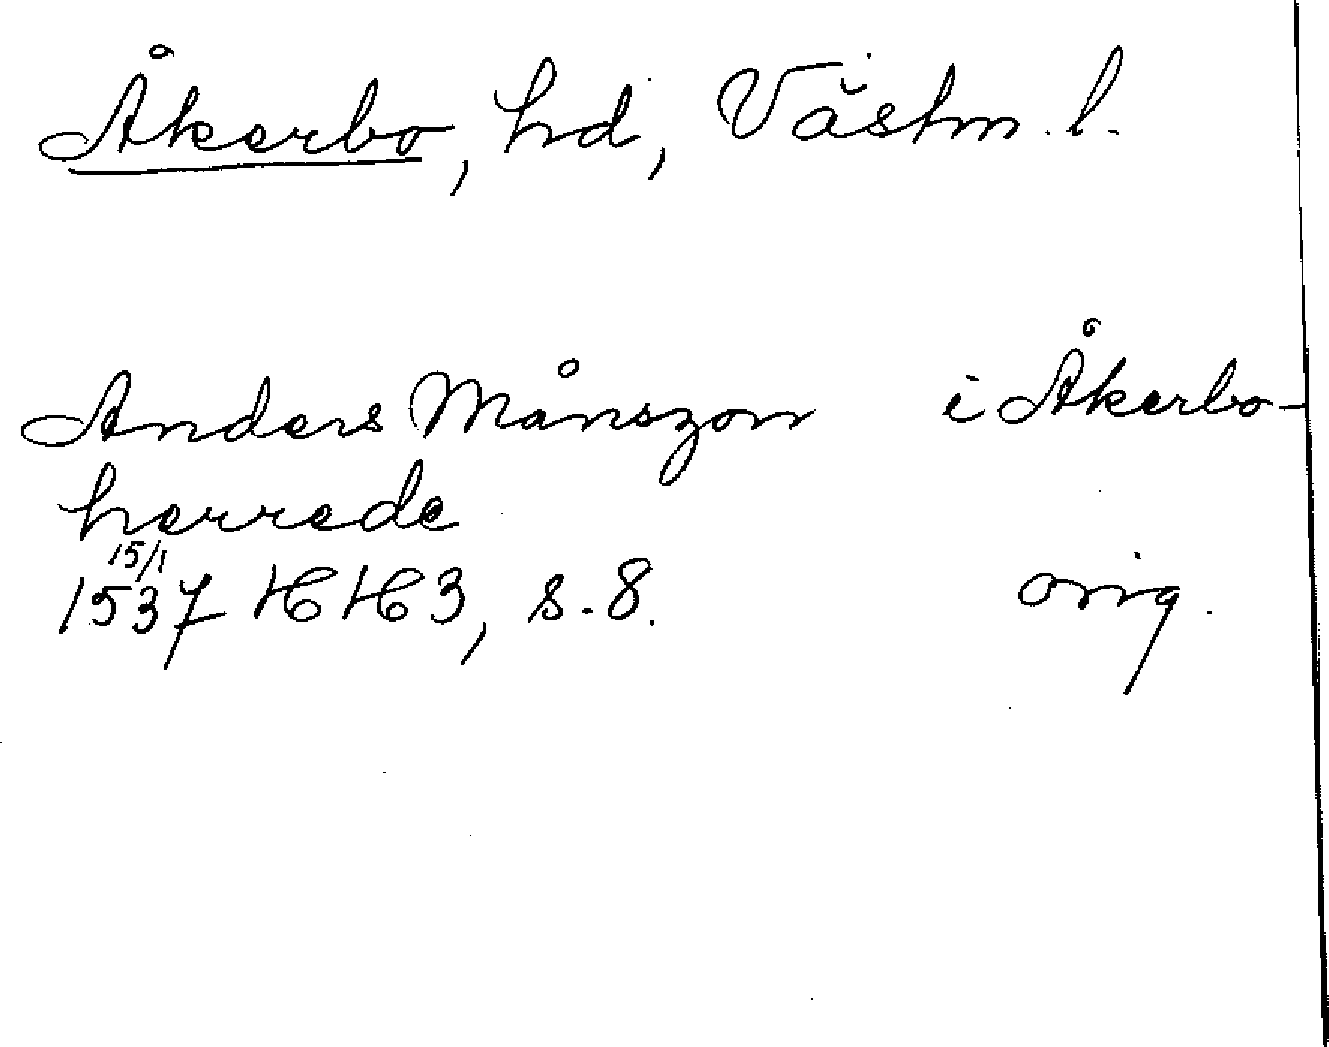 Åkerbo, hd, Västm. l.
Anders Månszon i Åkerbo-
herrede
15/1
1537 HH 3, s. 8. orig.